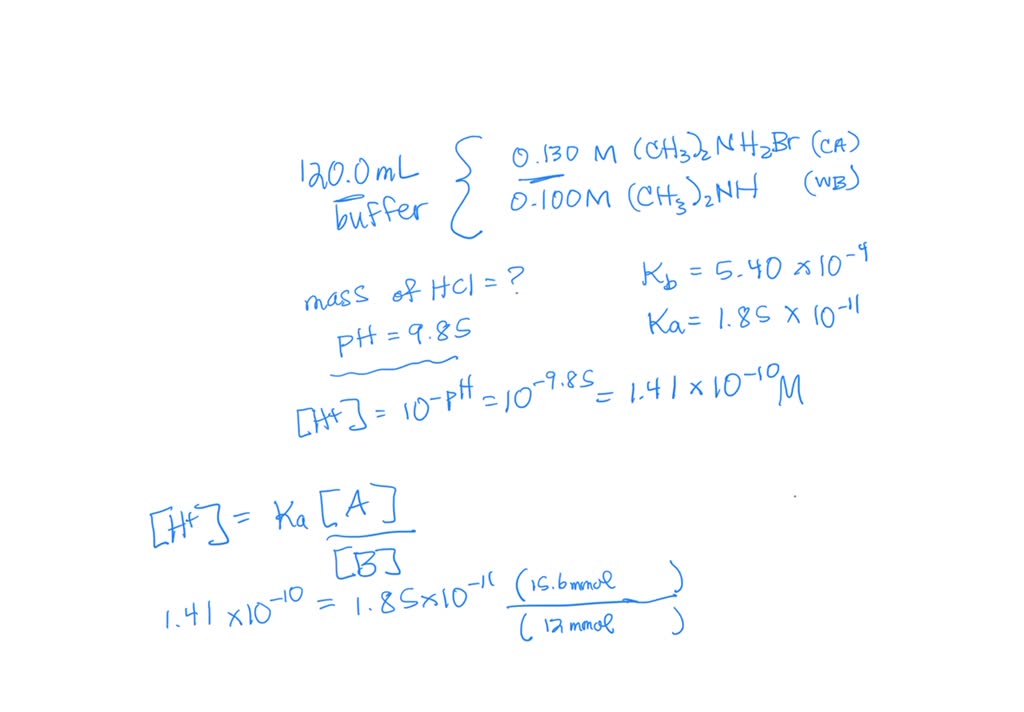 120.0mL
buffer
0.130 M (CH₃)₂NH₂Br (CA)
0.100M (CH₃)₂NH (WB)
mass of HCl = ?
pH = 9.85
Kb = 5.40 × 10⁻⁴
Ka = 1.85 × 10⁻¹¹
[H⁺] = 10⁻ᵖᴴ = 10⁻⁹·⁸⁵ = 1.41 × 10⁻¹⁰ M
[H⁺] = Ka [A]
[B]
1.41 × 10⁻¹⁰ = 1.85 × 10⁻¹¹ (15.6 mmol )
( 12 mmol )